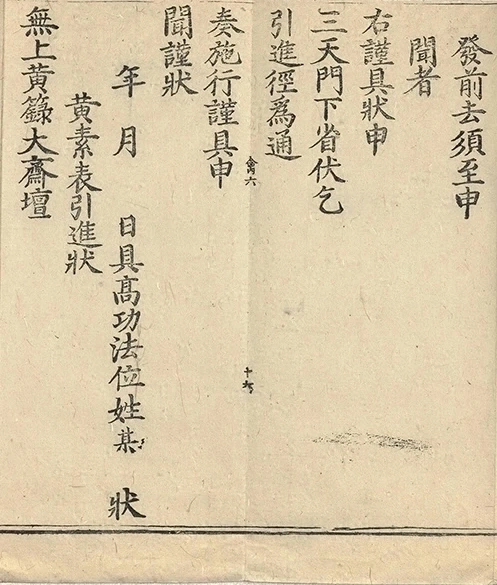 發前去須至申
聞者
右謹具狀申
三天門下省伏乞
引進徑爲通
禽六
奏施行謹具申
聞謹狀
年 月 日具髙功法位姓某 狀
黄素表引進狀
無上黄籙大齋壇